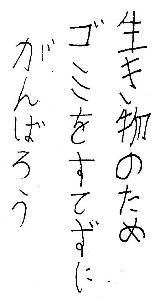 生き物のため
ゴミをすてずに
がんばろう